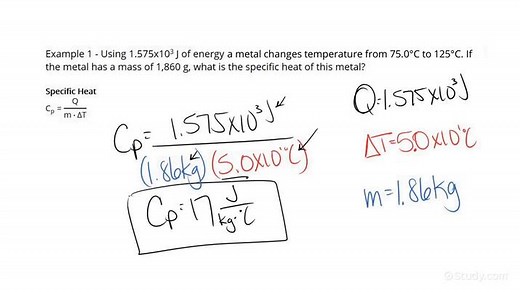 Example 1 - Using 1.575x10³ J of energy a metal changes temperature from 75.0°C to 125°C. If
the metal has a mass of 1,860 g, what is the specific heat of this metal?
Specific Heat
Cₚ = Q / m · ΔT
Cₚ = 1.575x10³J / (1.86kg)(5.0x10¹°C)
Cₚ = 17 J / kg·°C
Q=1.575x10³J
ΔT=5.0x10¹°C
m=1.86kg
Study.com